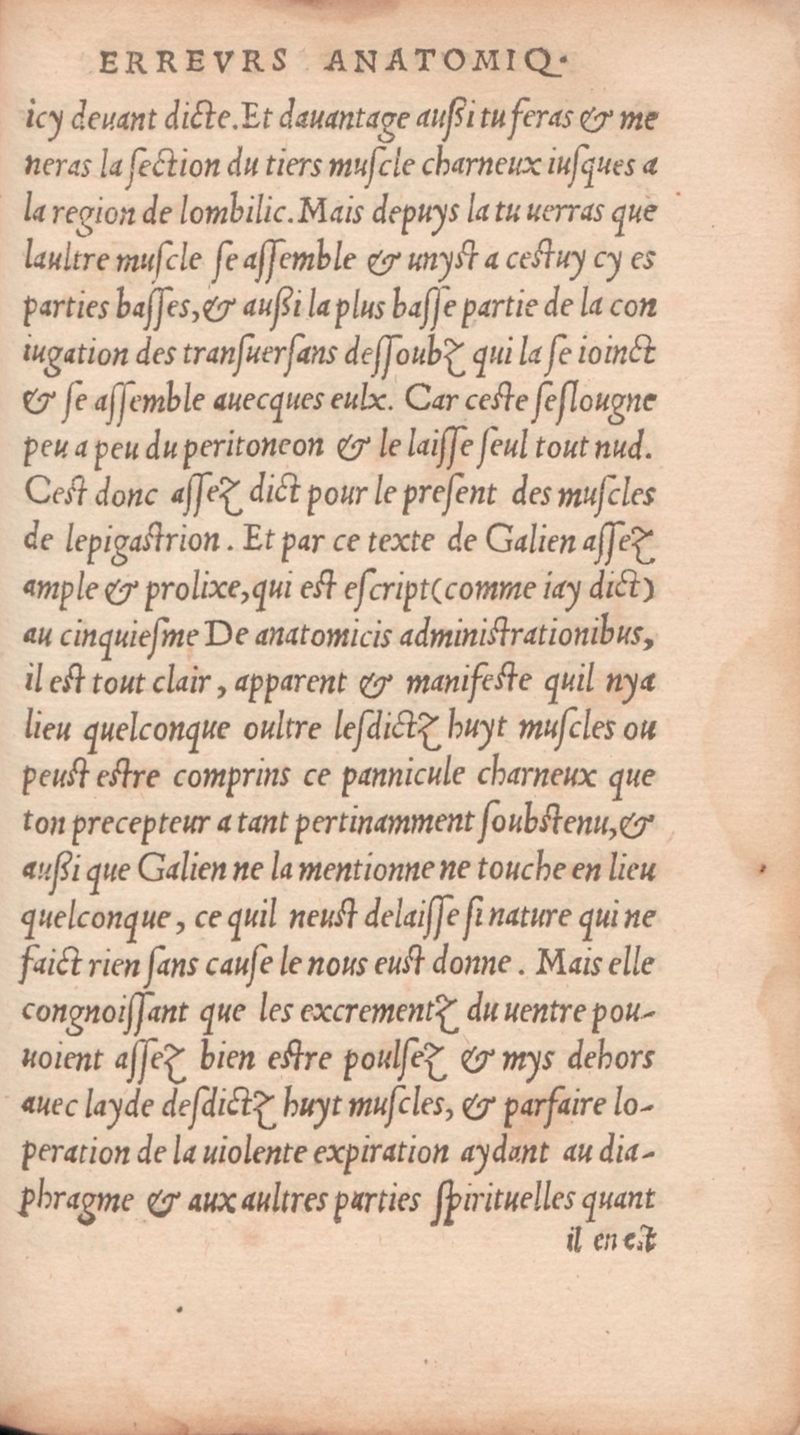 ERREVRS ANATOMIQ.
icy deuant dicte.Et dauantage außi tu feras & me
neras la ſection du tiers muſcle charneux iuſques a
la region de lombilic.Mais depuys la tu uerras que
laultre muſcle ſe aſſemble & unyſt a ceſtuy cy es
parties baſſes,& außi la plus baſſe partie de la con
iugation des tranſuerſans deſſoubz qui la ſe ioinct
& ſe aſſemble auecques eulx. Car ceſte ſeſlougne
peu a peu du peritoneon & le laiſſe ſeul tout nud.
Ceſt donc aſſez dict pour le preſent des muſcles
de lepigaſtrion. Et par ce texte de Galien aſſez
ample & prolixe,qui eſt eſcript(comme iay dict)
au cinquieſme De anatomicis adminiſtrationibus,
il eſt tout clair, apparent & manifeſte quil nya
lieu quelconque oultre leſdictz huyt muſcles ou
peuſt eſtre comprins ce pannicule charneux que
ton precepteur a tant pertinamment ſoubſtenu,&
außi que Galien ne la mentionne ne touche en lieu
quelconque, ce quil neuſt delaiſſe ſi nature qui ne
faict rien ſans cauſe le nous euſt donne. Mais elle
congnoiſſant que les excrementz du uentre pou-
uoient aſſez bien eſtre poulſez & mys dehors
auec layde deſdictz huyt muſcles, & parfaire lo-
peration de la uiolente expiration aydant au dia-
phragme & aux aultres parties ſpirituelles quant
il en eſt